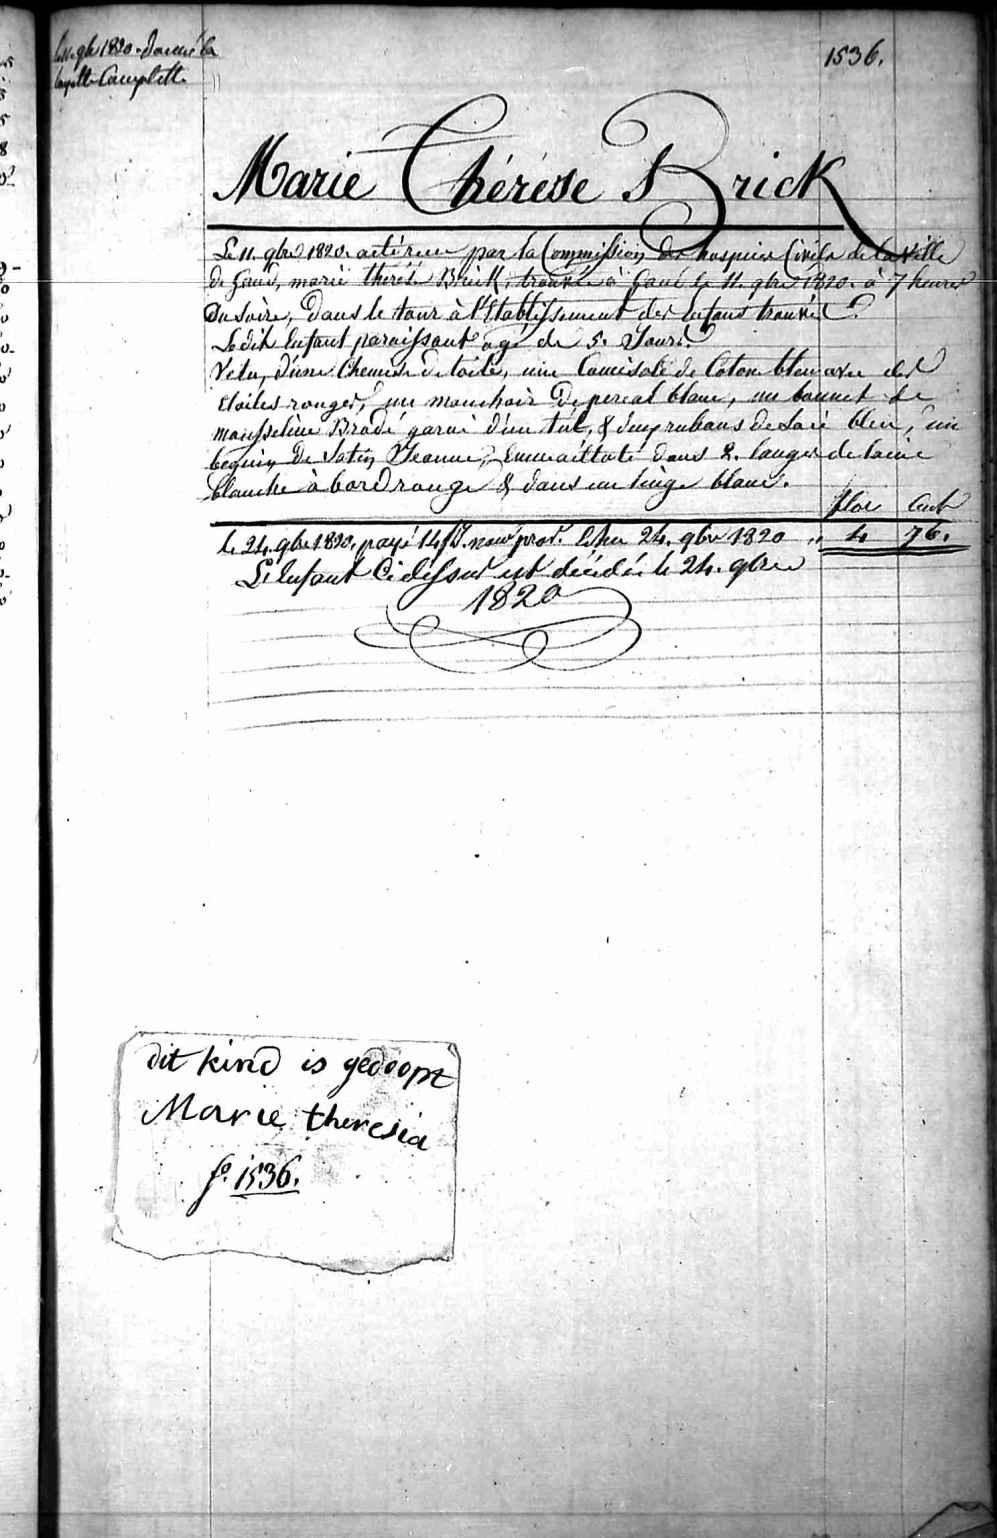 le 11. gbr 1820. Donné la
layette Complette
1536.
Marie Thérése Brick
Le 11. gbre 1820. acté reçu par la Commission des hospices Civils de la Ville
de Gand, marie therése Brick, trouvée à Gand le 11. gbre 1820. à 7 heures
Du Soire, Dans le tour à l'Etablissement des Enfans trouvés.
Ledit Enfant paraissant agé de 5. Jours.
Vetu, d'une Chemise de toile, une Camisole de Coton bleu avec des
Etoiles rouges, un mouchoir de percal blanc, un bonnet de
mousseline Brodé garni d'un tul, & d'un rubans de Soie bleu, un
beguin de Satin Jeaune, Emmaillotté dans 2. langes de laine
blanche à bord rouge & dans un linge blanc.
flor Cent
le 24. gbre 1820. payé 14 Js. nour prov. Echu 24. gbre 1820 " 4 76.
L'Enfant Ci dessus est décédé le 24. gbre
1820
dit kind is gedoopt
Marie theresia
fo. 1536.